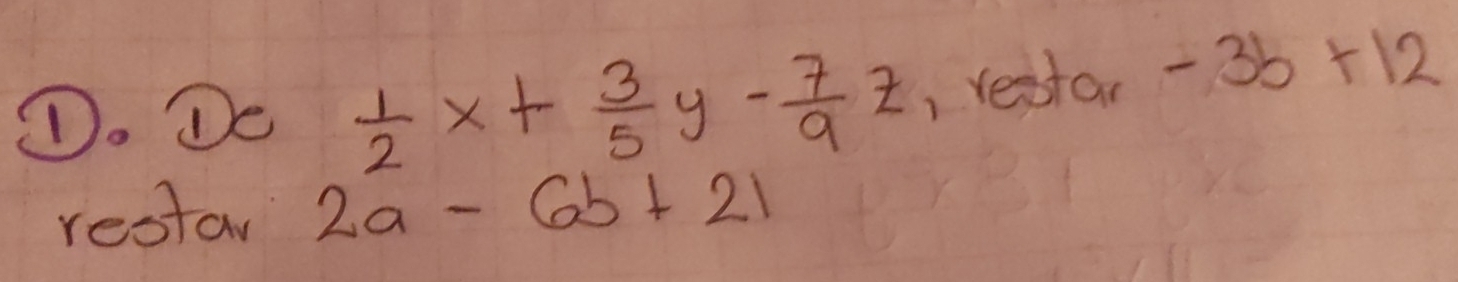 ①. De 1/2 x + 3/5 y - 7/9 z, restar - 3b + 12
restar 2a - 6b + 21